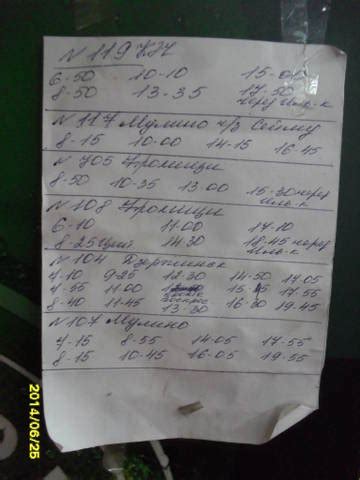 N 119 КНН
6-50 10-10 15-01
8-50 13-35 17-50
через Иль-к
N 117 Мулино ч/з Сейму
8-15 10-00 14-15 16-45
N 705 Фролищи
8-50 10-35 13-00 15-30 через
Иль-к
N 108 Фролищи
6-10 11-00 17-10
8-25 14-30 18-45 через
Иль-к
N 104 Дзержинск
4-10 9-25 12-30 14-50 17-05
4-55 11-00 15-45 17-55
8-40 11-45 13-30 16-30 19-45
N 107 Мулино
4-15 8-55 14-05 17-55
8-15 10-45 16-05 19-55
2014/06/25